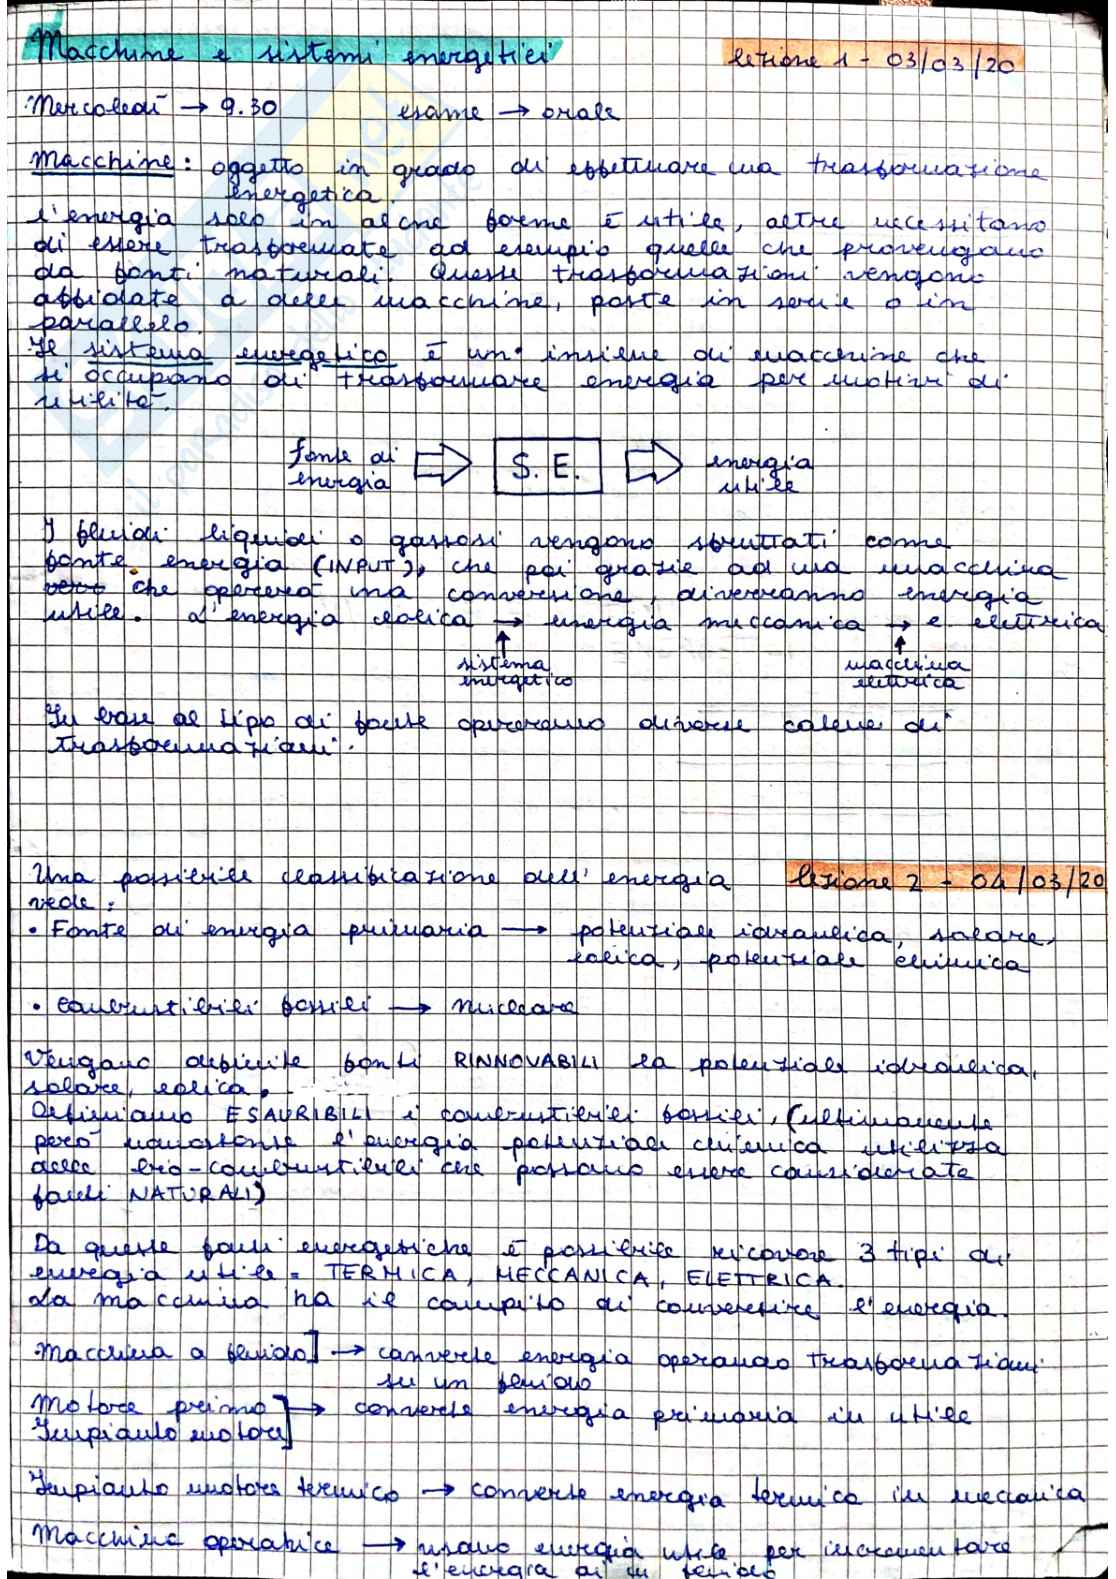 Macchine e sistemi energetici
lezione 1 - 03/03/20
Mercoledì → 9.30 esame → orale
Macchine: oggetto in grado di effettuare una trasformazione
energetica.
L'energia solo in alcne forme è utile, altre necessitano
di essere trasformate ad esempio quelle che provengano
da fonti naturali. Queste trasformazioni vengono
affidate a delle macchine, poste in serie o in
parallelo.
Il sistema energetico è un insieme di macchine che
si occupano di trasformare energia per motivi di
utilità.
fonte di
energia
S. E.
energia
utile
I fluidi liquidi o gassosi vengono sfruttati come
fonte energia (INPUT), che poi grazie ad una macchina
che opererà una conversione, diverranno energia
utile. L'energia eolica → energia meccanica → e. elettrica
↑ sistema
energetico
↑ macchina
elettrica
In base al tipo di fonte opereranno diverse catene di
trasformazioni.
Una possibile classificazione dell'energia
lezione 2 - 04/03/20
vede:
• Fonte di energia primaria → potenziale idraulica, solare,
eolica, potenziale chimica
• combustibili fossili → nucleare
Vengano definite fonti RINNOVABILI la potenziale idraulica,
solare, eolica.
Definiamo ESAURIBILI i combustibili fossili, (ultimamente
però nonostante l'energia potenziale chimica utilizza
delle bio-combustibili che possono essere considerate
fonti NATURALI)
Da queste fonti energetiche è possibile ricavare 3 tipi di
energia utile = TERMICA, MECCANICA, ELETTRICA.
La macchina ha il compito di convertire l'energia.
Macchina a fluido] → converte energia operando trasformazioni
su un fluido
Motore primo
Impianto motore] → converte energia primaria in utile
Impianto motore termico → converte energia termica in meccanica
Macchina operatrice → usano energia utile per incrementare
l'energia di un fluido
il paradiso dello studente